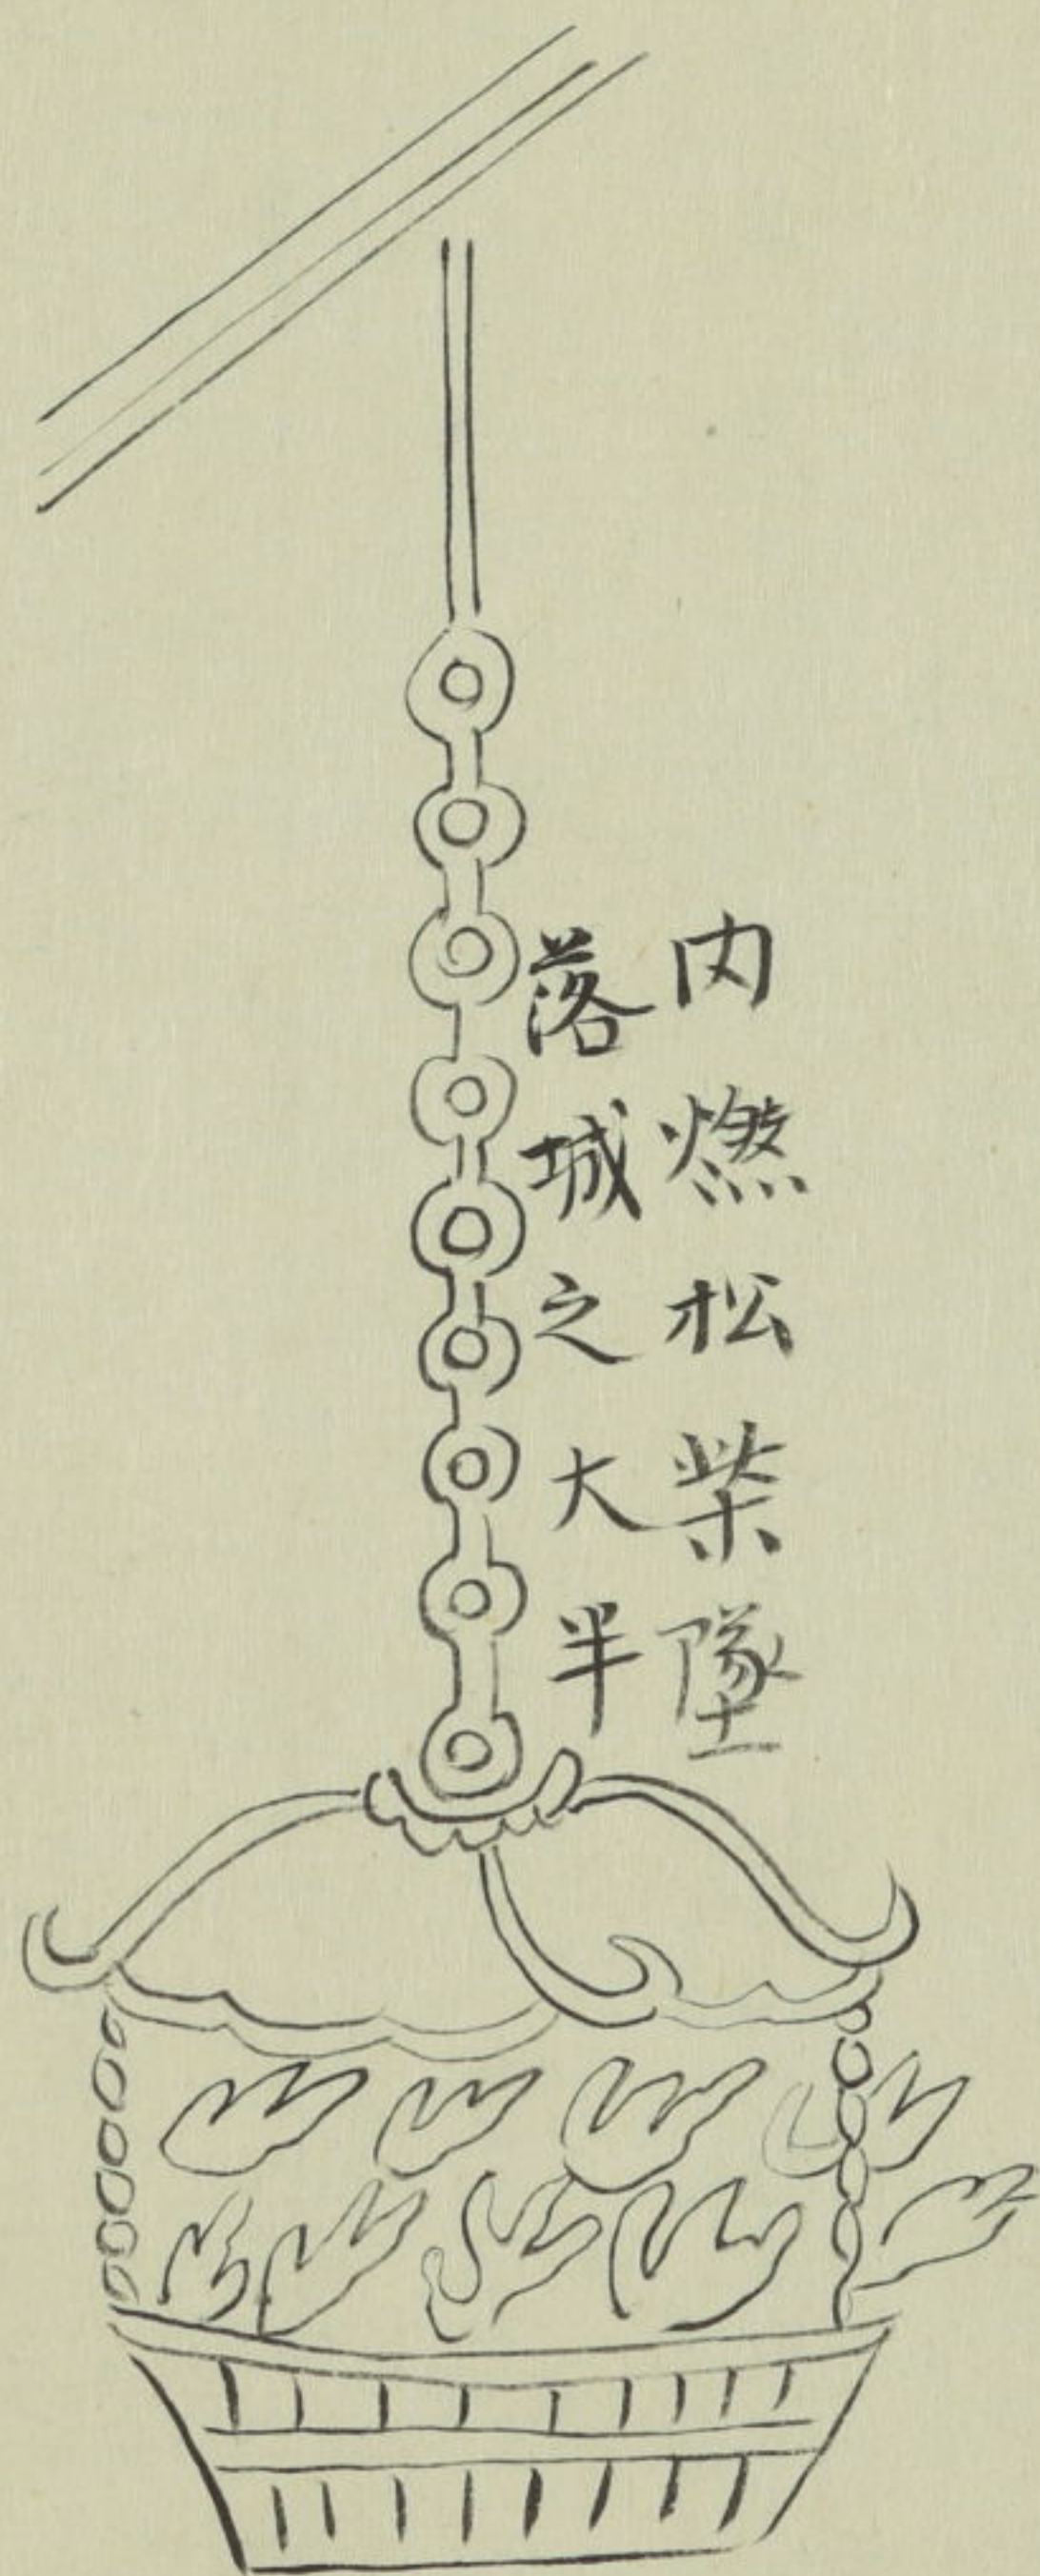 内燃松柴墜
落城之大半